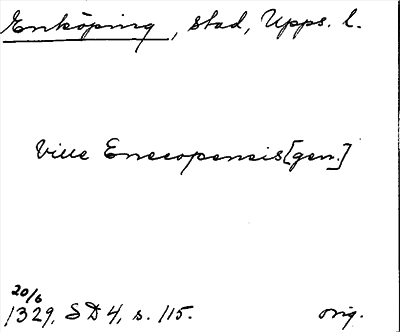 Enköping, stad, Upps. l.
Ville Enecopensis [gen.]
20/6
1329, SD 4, s. 115. orig.